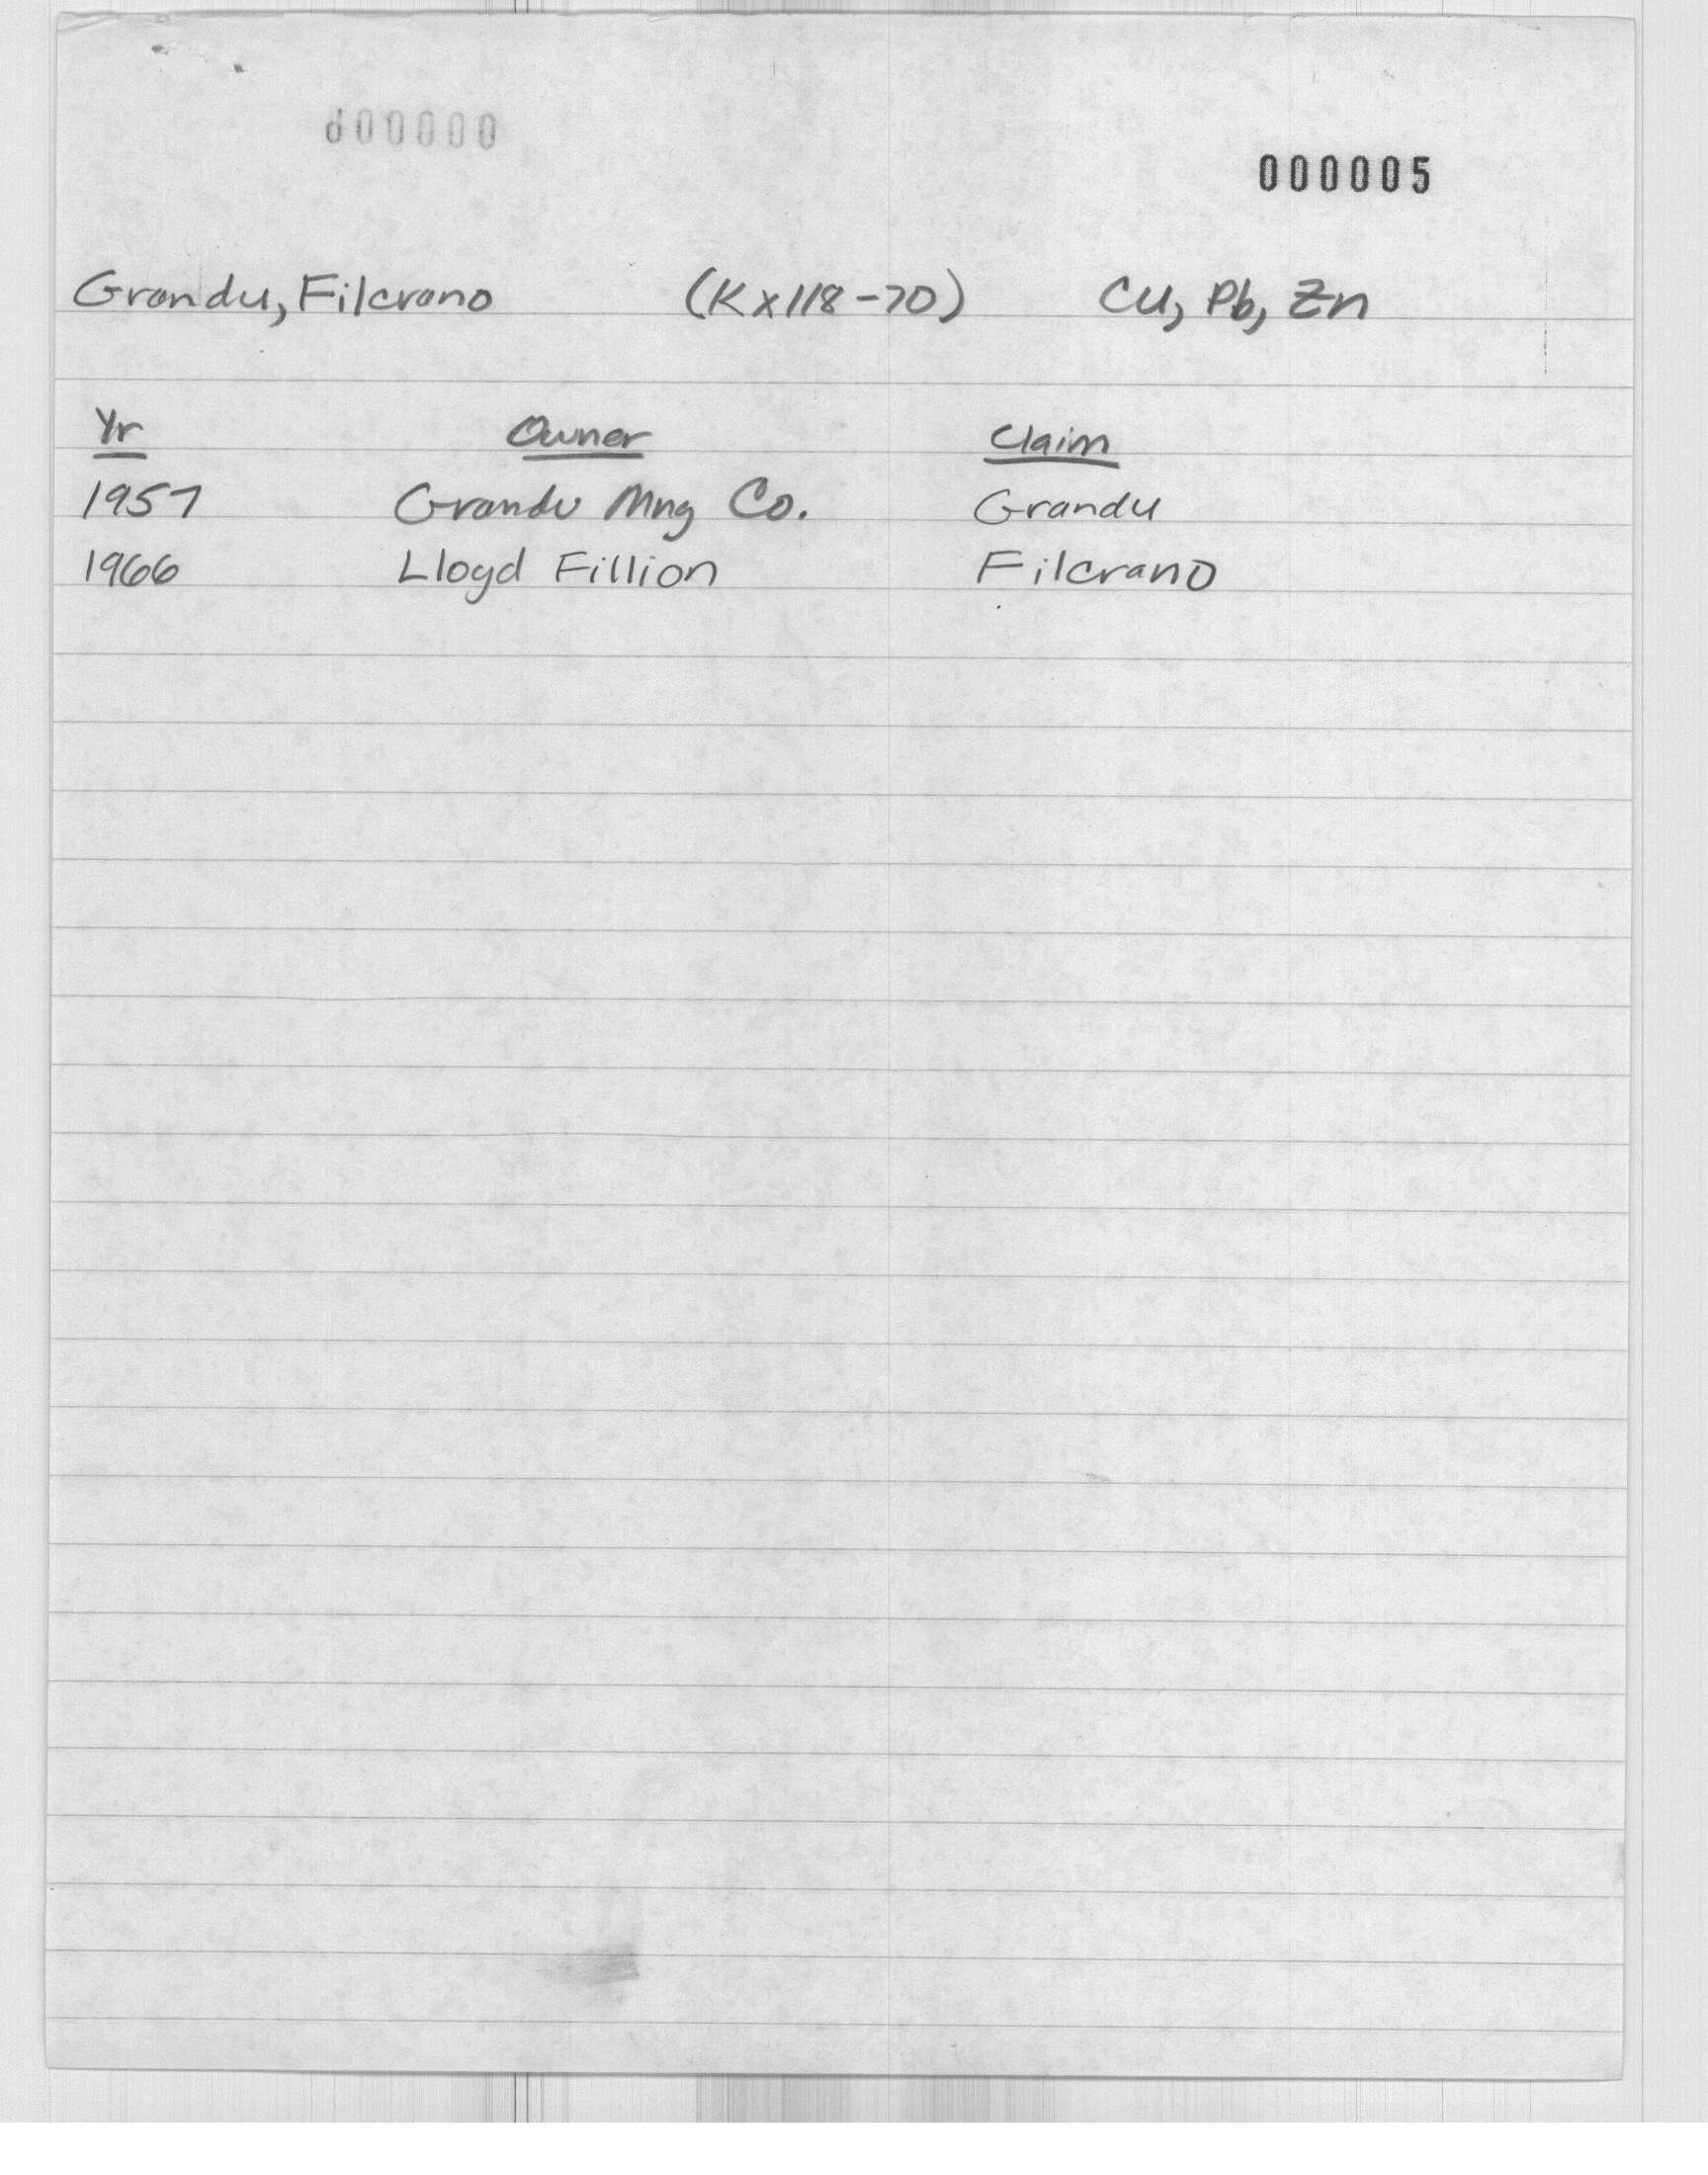 000005
Grandu, Filcrano (Kx118-70) Cu, Pb, Zn
Yr Owner Claim
1957 Grandu Mng Co. Grandu
1966 Lloyd Fillion Filcrano